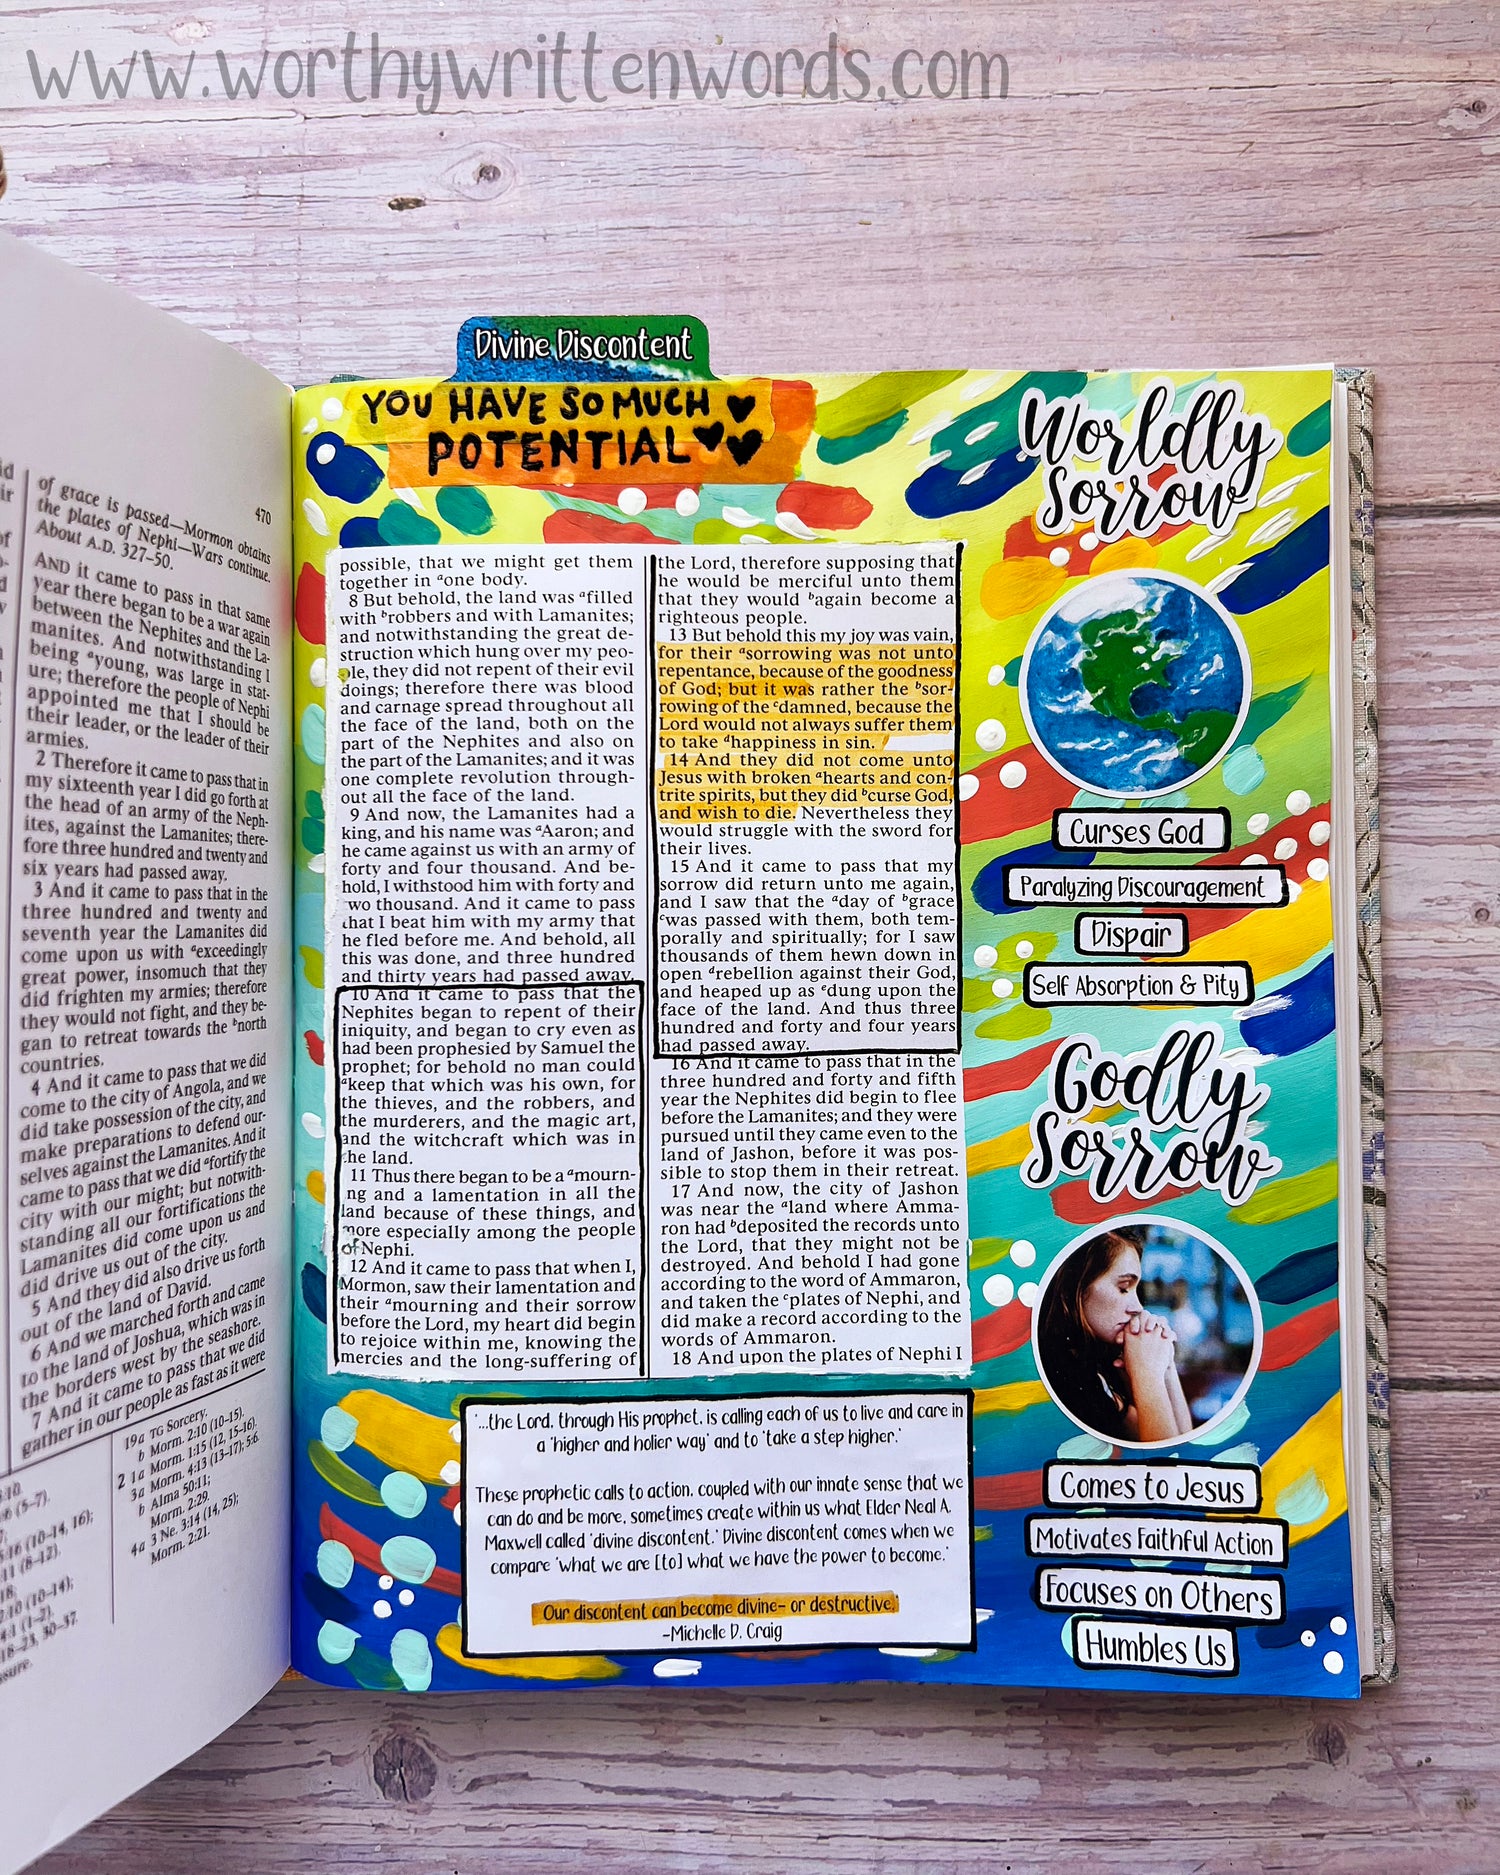 www.worthywrittenwords.com
470
of grace is passed—Mormon obtains
the plates of Nephi—Wars continue.
About A.D. 327–50.
AND it came to pass in that same
year there began to be a war again
between the Nephites and the La-
manites. And notwithstanding I
being ayoung, was large in stat-
ure; therefore the people of Nephi
appointed me that I should be
their leader, or the leader of their
armies.
2 Therefore it came to pass that in
my sixteenth year I did go forth at
the head of an army of the Neph-
ites, against the Lamanites; there-
fore three hundred and twenty and
six years had passed away.
3 And it came to pass that in the
three hundred and twenty and
seventh year the Lamanites did
come upon us with aexceedingly
great power, insomuch that they
did frighten my armies; therefore
they would not fight, and they be-
gan to retreat towards the bnorth
countries.
4 And it came to pass that we did
come to the city of Angola, and we
did take possession of the city, and
make preparations to defend our-
selves against the Lamanites. And it
came to pass that we did afortify the
city with our might; but notwith-
standing all our fortifications the
Lamanites did come upon us and
did drive us out of the city.
5 And they did also drive us forth
out of the land of David.
6 And we marched forth and came
to the land of Joshua, which was in
the borders west by the seashore.
7 And it came to pass that we did
gather in our people as fast as it were
19a TG Sorcery.
b Morm. 2:10 (10–15).
2 1a Morm. 1:15 (12, 15–16).
3a Morm. 4:13 (13–17); 5:6.
b Alma 50:11;
Morm. 2:29.
4a 3 Ne. 3:14 (14, 25);
Morm. 2:21.
Divine Discontent
YOU HAVE SO MUCH
POTENTIAL
possible, that we might get them
together in aone body.
8 But behold, the land was afilled
with brobbers and with Lamanites;
and notwithstanding the great de-
struction which hung over my peo-
ple, they did not repent of their evil
doings; therefore there was blood
and carnage spread throughout all
the face of the land, both on the
part of the Nephites and also on
the part of the Lamanites; and it was
one complete revolution through-
out all the face of the land.
9 And now, the Lamanites had a
king, and his name was aAaron; and
he came against us with an army of
forty and four thousand. And be-
hold, I withstood him with forty and
two thousand. And it came to pass
that I beat him with my army that
he fled before me. And behold, all
this was done, and three hundred
and thirty years had passed away.
10 And it came to pass that the
Nephites began to repent of their
iniquity, and began to cry even as
had been prophesied by Samuel the
prophet; for behold no man could
akeep that which was his own, for
the thieves, and the robbers, and
the murderers, and the magic art,
and the witchcraft which was in
the land.
11 Thus there began to be a amourn-
ing and a lamentation in all the
land because of these things, and
more especially among the people
of Nephi.
12 And it came to pass that when I,
Mormon, saw their lamentation and
their amourning and their sorrow
before the Lord, my heart did begin
to rejoice within me, knowing the
mercies and the long-suffering of
the Lord, therefore supposing that
he would be merciful unto them
that they would bagain become a
righteous people.
13 But behold this my joy was vain,
for their asorrowing was not unto
repentance, because of the goodness
of God; but it was rather the bsor-
rowing of the cdamned, because the
Lord would not always suffer them
to take dhappiness in sin.
14 And they did not come unto
Jesus with broken ahearts and con-
trite spirits, but they did bcurse God,
and wish to die. Nevertheless they
would struggle with the sword for
their lives.
15 And it came to pass that my
sorrow did return unto me again,
and I saw that the aday of bgrace
cwas passed with them, both tem-
porally and spiritually; for I saw
thousands of them hewn down in
open drebellion against their God,
and heaped up as edung upon the
face of the land. And thus three
hundred and forty and four years
had passed away.
16 And it came to pass that in the
three hundred and forty and fifth
year the Nephites did begin to flee
before the Lamanites; and they were
pursued until they came even to the
land of Jashon, before it was pos-
sible to stop them in their retreat.
17 And now, the city of Jashon
was near the aland where Amma-
ron had bdeposited the records unto
the Lord, that they might not be
destroyed. And behold I had gone
according to the word of Ammaron,
and taken the cplates of Nephi, and
did make a record according to the
words of Ammaron.
18 And upon the plates of Nephi I
'...the Lord, through His prophet, is calling each of us to live and care in
a 'higher and holier way' and to 'take a step higher.'
These prophetic calls to action, coupled with our innate sense that we
can do and be more, sometimes create within us what Elder Neal A.
Maxwell called 'divine discontent.' Divine discontent comes when we
compare 'what we are [to] what we have the power to become.'
Our discontent can become divine- or destructive.'
-Michelle D. Craig
Worldly
Sorrow
Curses God
Paralyzing Discouragement
Dispair
Self Absorption & Pity
Godly
Sorrow
Comes to Jesus
Motivates Faithful Action
Focuses on Others
Humbles Us